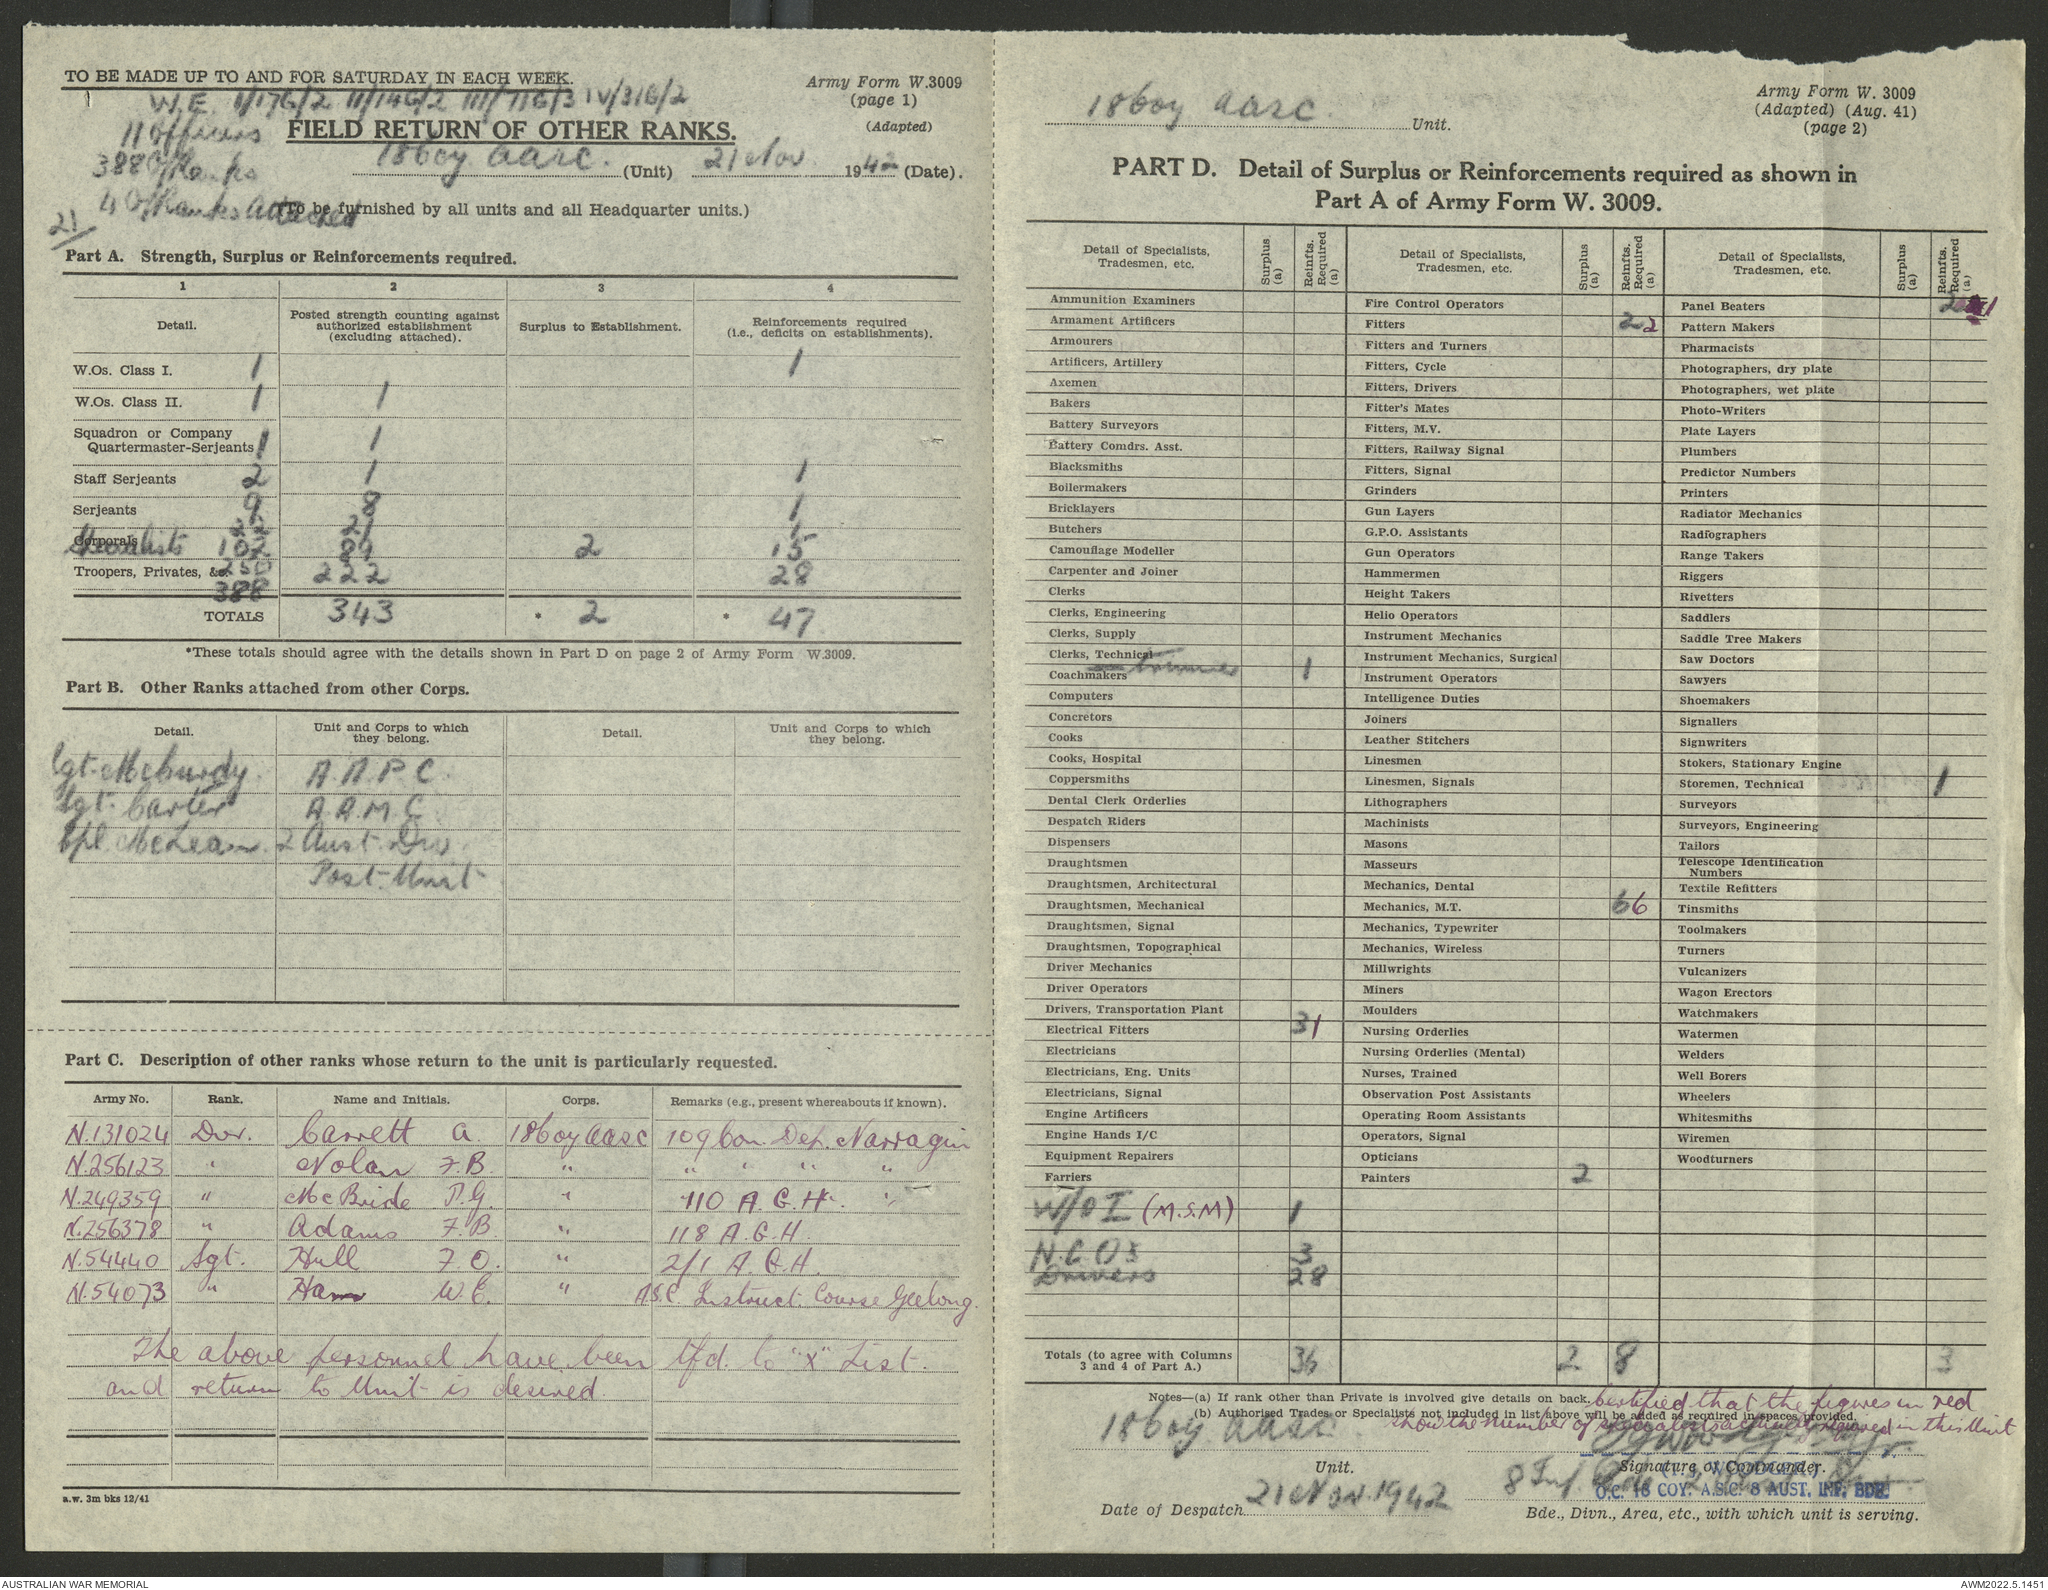 TO BE MADE UP TO AND FOR SATURDAY IN EACH WEEK.
Army Form W.3009
(page 1)
(Adapted)
W.E. I/17G/2 II/14G/2 III/71G/3 IV/31G/2
11 Officers
FIELD RETURN OF OTHER RANKS.
388 O/Ranks
18 Coy AASC. (Unit) 21 Nov. 1942 (Date).
4 O/Ranks Attached
(To be furnished by all units and all Headquarter units.)
21/
Part A. Strength, Surplus or Reinforcements required.
1 2 3 4
Detail. Posted strength counting against authorized establishment (excluding attached). Surplus to Establishment. Reinforcements required (i.e., deficits on establishments).
W.Os. Class I. 1 1
W.Os. Class II. 1 1
Squadron or Company
Quartermaster-Serjeants 1 1
Staff Serjeants 2 1 1
Serjeants 9 8 1
Corporals 22 21 1
Specialists 102 89 2 15
Troopers, Privates, &c. 250 222 28
388
TOTALS 343 * 2 * 47
*These totals should agree with the details shown in Part D on page 2 of Army Form W.3009.
Part B. Other Ranks attached from other Corps.
Detail. Unit and Corps to which they belong. Detail. Unit and Corps to which they belong.
Sgt. McCurdy. A.A.P.C.
Sgt. Carter A.A.M.C.
Cpl. McLean. 2 Aust. Div.
Post. Unit
Part C. Description of other ranks whose return to the unit is particularly requested.
Army No. Rank. Name and Initials. Corps. Remarks (e.g., present whereabouts if known).
N.131024 Dvr. Garrett A. 18 Coy AASC 109 Con. Dep. Narragin
N.256123 " Nolan F.B. " " " " "
N.249359 " McBride P.G. " 110 A.G.H. "
N.256378 " Adams F.B. " 118 A.G.H.
N.54440 Sgt. Hull F.O. " 2/1 A.G.H.
N.54073 " Ham W.E. " ASC Instruct. Course Geelong.
The above personnel have been tfd. to "X" List.
and return to Unit is desired.
a.w. 3m bks 12/41
18 Coy AASC. Unit.
Army Form W. 3009
(Adapted) (Aug. 41)
(page 2)
PART D. Detail of Surplus or Reinforcements required as shown in
Part A of Army Form W. 3009.
Detail of Specialists, Tradesmen, etc. Surplus (a) Reinfts. Required (a)
Ammunition Examiners
Armament Artificers
Armourers
Artificers, Artillery
Axemen
Bakers
Battery Surveyors
Battery Comdrs. Asst.
Blacksmiths
Boilermakers
Bricklayers
Butchers
Camouflage Modeller
Carpenter and Joiner
Clerks
Clerks, Engineering
Clerks, Supply
Clerks, Technical
Coachmakers trimmers 1
Computers
Concretors
Cooks
Cooks, Hospital
Coppersmiths
Dental Clerk Orderlies
Despatch Riders
Dispensers
Draughtsmen
Draughtsmen, Architectural
Draughtsmen, Mechanical
Draughtsmen, Signal
Draughtsmen, Topographical
Driver Mechanics
Driver Operators
Drivers, Transportation Plant
Electrical Fitters 31
Electricians
Electricians, Eng. Units
Electricians, Signal
Engine Artificers
Engine Hands I/C
Equipment Repairers
Farriers
W/O I (M.S.M) 1
N.C.O's 3
Drivers 28
Totals (to agree with Columns
3 and 4 of Part A.) 36
Detail of Specialists, Tradesmen, etc. Surplus (a) Reinfts. Required (a)
Fire Control Operators
Fitters 2 2
Fitters and Turners
Fitters, Cycle
Fitters, Drivers
Fitter's Mates
Fitters, M.V.
Fitters, Railway Signal
Fitters, Signal
Grinders
Gun Layers
G.P.O. Assistants
Gun Operators
Hammermen
Height Takers
Helio Operators
Instrument Mechanics
Instrument Mechanics, Surgical
Instrument Operators
Intelligence Duties
Joiners
Leather Stitchers
Linesmen
Linesmen, Signals
Lithographers
Machinists
Masons
Masseurs
Mechanics, Dental
Mechanics, M.T. 6 6
Mechanics, Typewriter
Mechanics, Wireless
Millwrights
Miners
Moulders
Nursing Orderlies
Nursing Orderlies (Mental)
Nurses, Trained
Observation Post Assistants
Operating Room Assistants
Operators, Signal
Opticians
Painters 2
2 8
Detail of Specialists, Tradesmen, etc. Surplus (a) Reinfts. Required (a)
Panel Beaters 2 1
Pattern Makers
Pharmacists
Photographers, dry plate
Photographers, wet plate
Photo-Writers
Plate Layers
Plumbers
Predictor Numbers
Printers
Radiator Mechanics
Radiographers
Range Takers
Riggers
Rivetters
Saddlers
Saddle Tree Makers
Saw Doctors
Sawyers
Shoemakers
Signallers
Signwriters
Stokers, Stationary Engine
Storemen, Technical 1
Surveyors
Surveyors, Engineering
Tailors
Telescope Identification
Numbers
Textile Refitters
Tinsmiths
Toolmakers
Turners
Vulcanizers
Wagon Erectors
Watchmakers
Watermen
Welders
Well Borers
Wheelers
Whitesmiths
Wiremen
Woodturners
3
Notes—(a) If rank other than Private is involved give details on back.
(b) Authorised Trades or Specialists not included in list above will be added as required in spaces provided.
Certified that the figures in red
show the number of specialists actually required in this Unit
18 Coy AASC.
Unit.
Signature of Commander.
O.C. 18 COY. A.S.C. 8 AUST. INF. BDE.
8 Inf. Bde
Date of Despatch 21 Nov. 1942
Bde., Divn., Area, etc., with which unit is serving.
AUSTRALIAN WAR MEMORIAL
AWM2022.5.1451